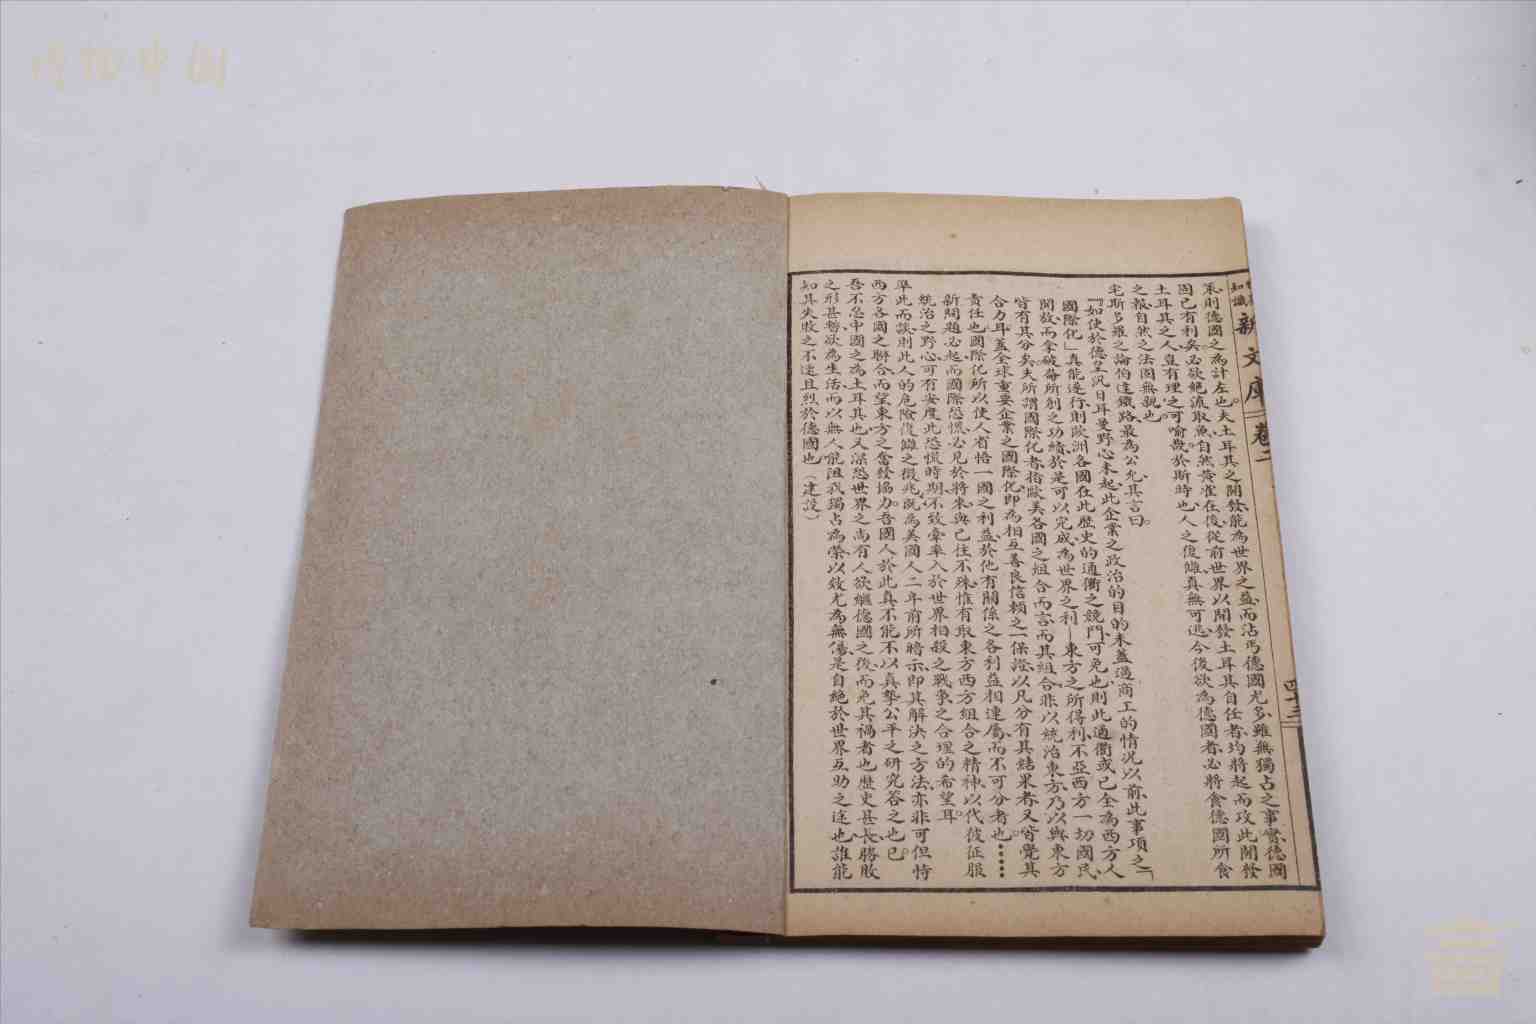 博物中国
知識
新文庫
卷二
四十三
國已有利矣必欲絕流取魚自然黃雀在後從前世界以開發土耳其自任者均將起而攻此開發
策則德國之為計左也夫土耳其之開發能為世界之益而沾丐德國尤多雖無獨占之事實德國
土耳其之人豈有理之可喻哉於斯時也人之復讎真無可逃今後欲為德國者必將食德國所食
之報自然之法固無親也
宅斯多羅之論伯達鐵路最為公允其言曰
『如使於德皇汎日耳曼野心未起此企業之政治的目的未蓋過商工的情況以前此事項之「
國際化」真能逐行則歐洲各國在此歷史的通衢之競鬥可免也則此通衢或已全為西方人
開放而拿破崙所創之功績於是可以完成為世界之利—東方之所得利不亞西方一切國民
皆有其分矣夫所謂國際化者指歐美各國之組合而言而其組合非以統治東方乃以與東方
合力耳蓋全球重要企業之國際化即為相互善良信賴之一保證以凡分有其結果者又皆覺其
責任也國際化所以使人省悟一國之利益於他有關係之各利益相連屬而不可分者也……
新問題必起而國際恐慌必見於將來與已往不殊惟有取東方西方組合之精神以代彼征服
統治之野心可有安度此恐慌時期不致牽率入於世界相殺之戰爭之合理的希望耳
單此而談則此人的危險復讎之徵兆既為美國人二年前所暗示即其解決之方法亦非可但恃
西方各國之聯合而望東方之奮發協力吾國人於此真不能不以真摯公平之研究答之也已
吾不忍中國之為土耳其也又深恐世界之尚有人欲繼德國之後而免其禍者也歷史甚長勝敗
之形甚暫欲為生活而以無人能阻我獨占為榮以效尤為無傷是自絕於世界互助之途也誰能
知其失敗之不速且烈於德國也（建設）